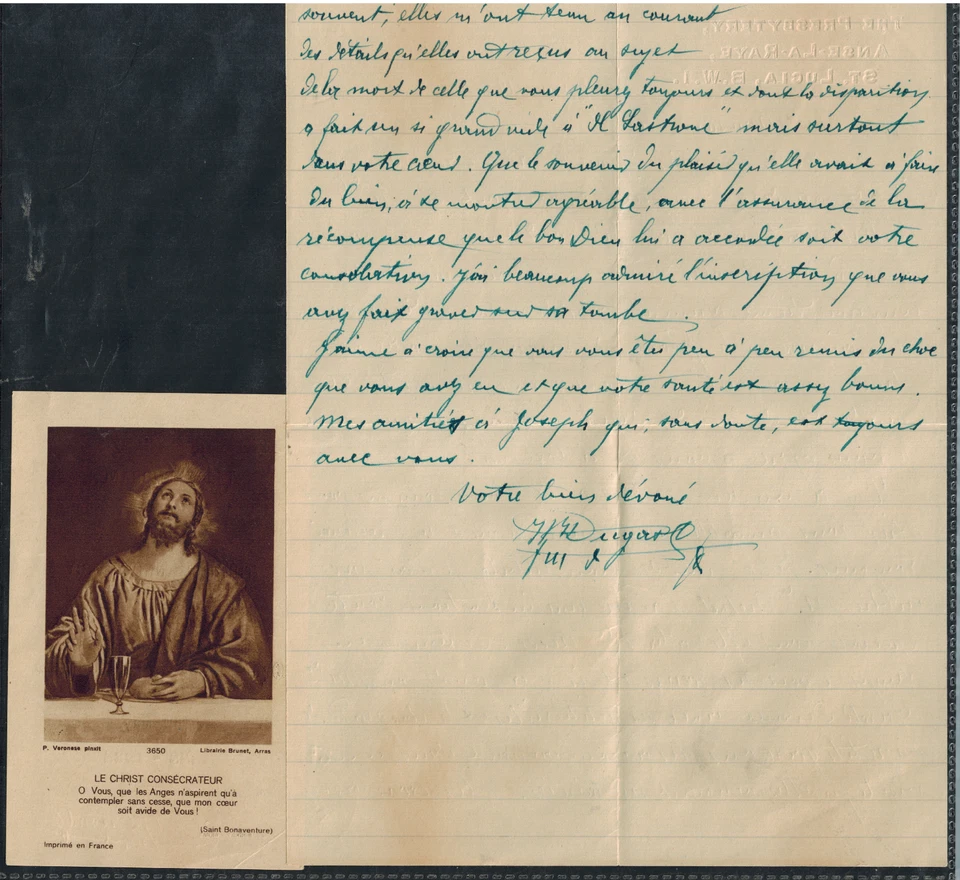 souvent, elles m'ont tenu au courant
des détails qu'elles ont reçus au sujet
de la mort de celle que vous pleurez toujours et dont la disparition
a fait un si grand vide à mais surtout
dans votre cœur. Que le souvenir du plaisir qu'elle avait à faire
du bien, à se montrer agréable, avec l'assurance de la
récompense que le bon Dieu lui a accordée soit votre
consolation. J'ai beaucoup admiré l'inscription que vous
avez fait graver sur sa tombe.
J'aime à croire que vous vous êtes peu à peu remis du choc
que vous avez eu et que votre santé est assez bonne.
Mes amitiés à Joseph qui, sans doute, est toujours
avec vous.
Votre bien dévoué
Dugast
THE PRESBYTERY,
ANSE-LA-RAYE,
ST. LUCIA, B.W.I.
P. Veronese pinxit 3650 Librairie Brunet, Arras
LE CHRIST CONSÉCRATEUR
O Vous, que les Anges n'aspirent qu'à
contempler sans cesse, que mon cœur
soit avide de Vous !
(Saint Bonaventure)
Imprimé en France